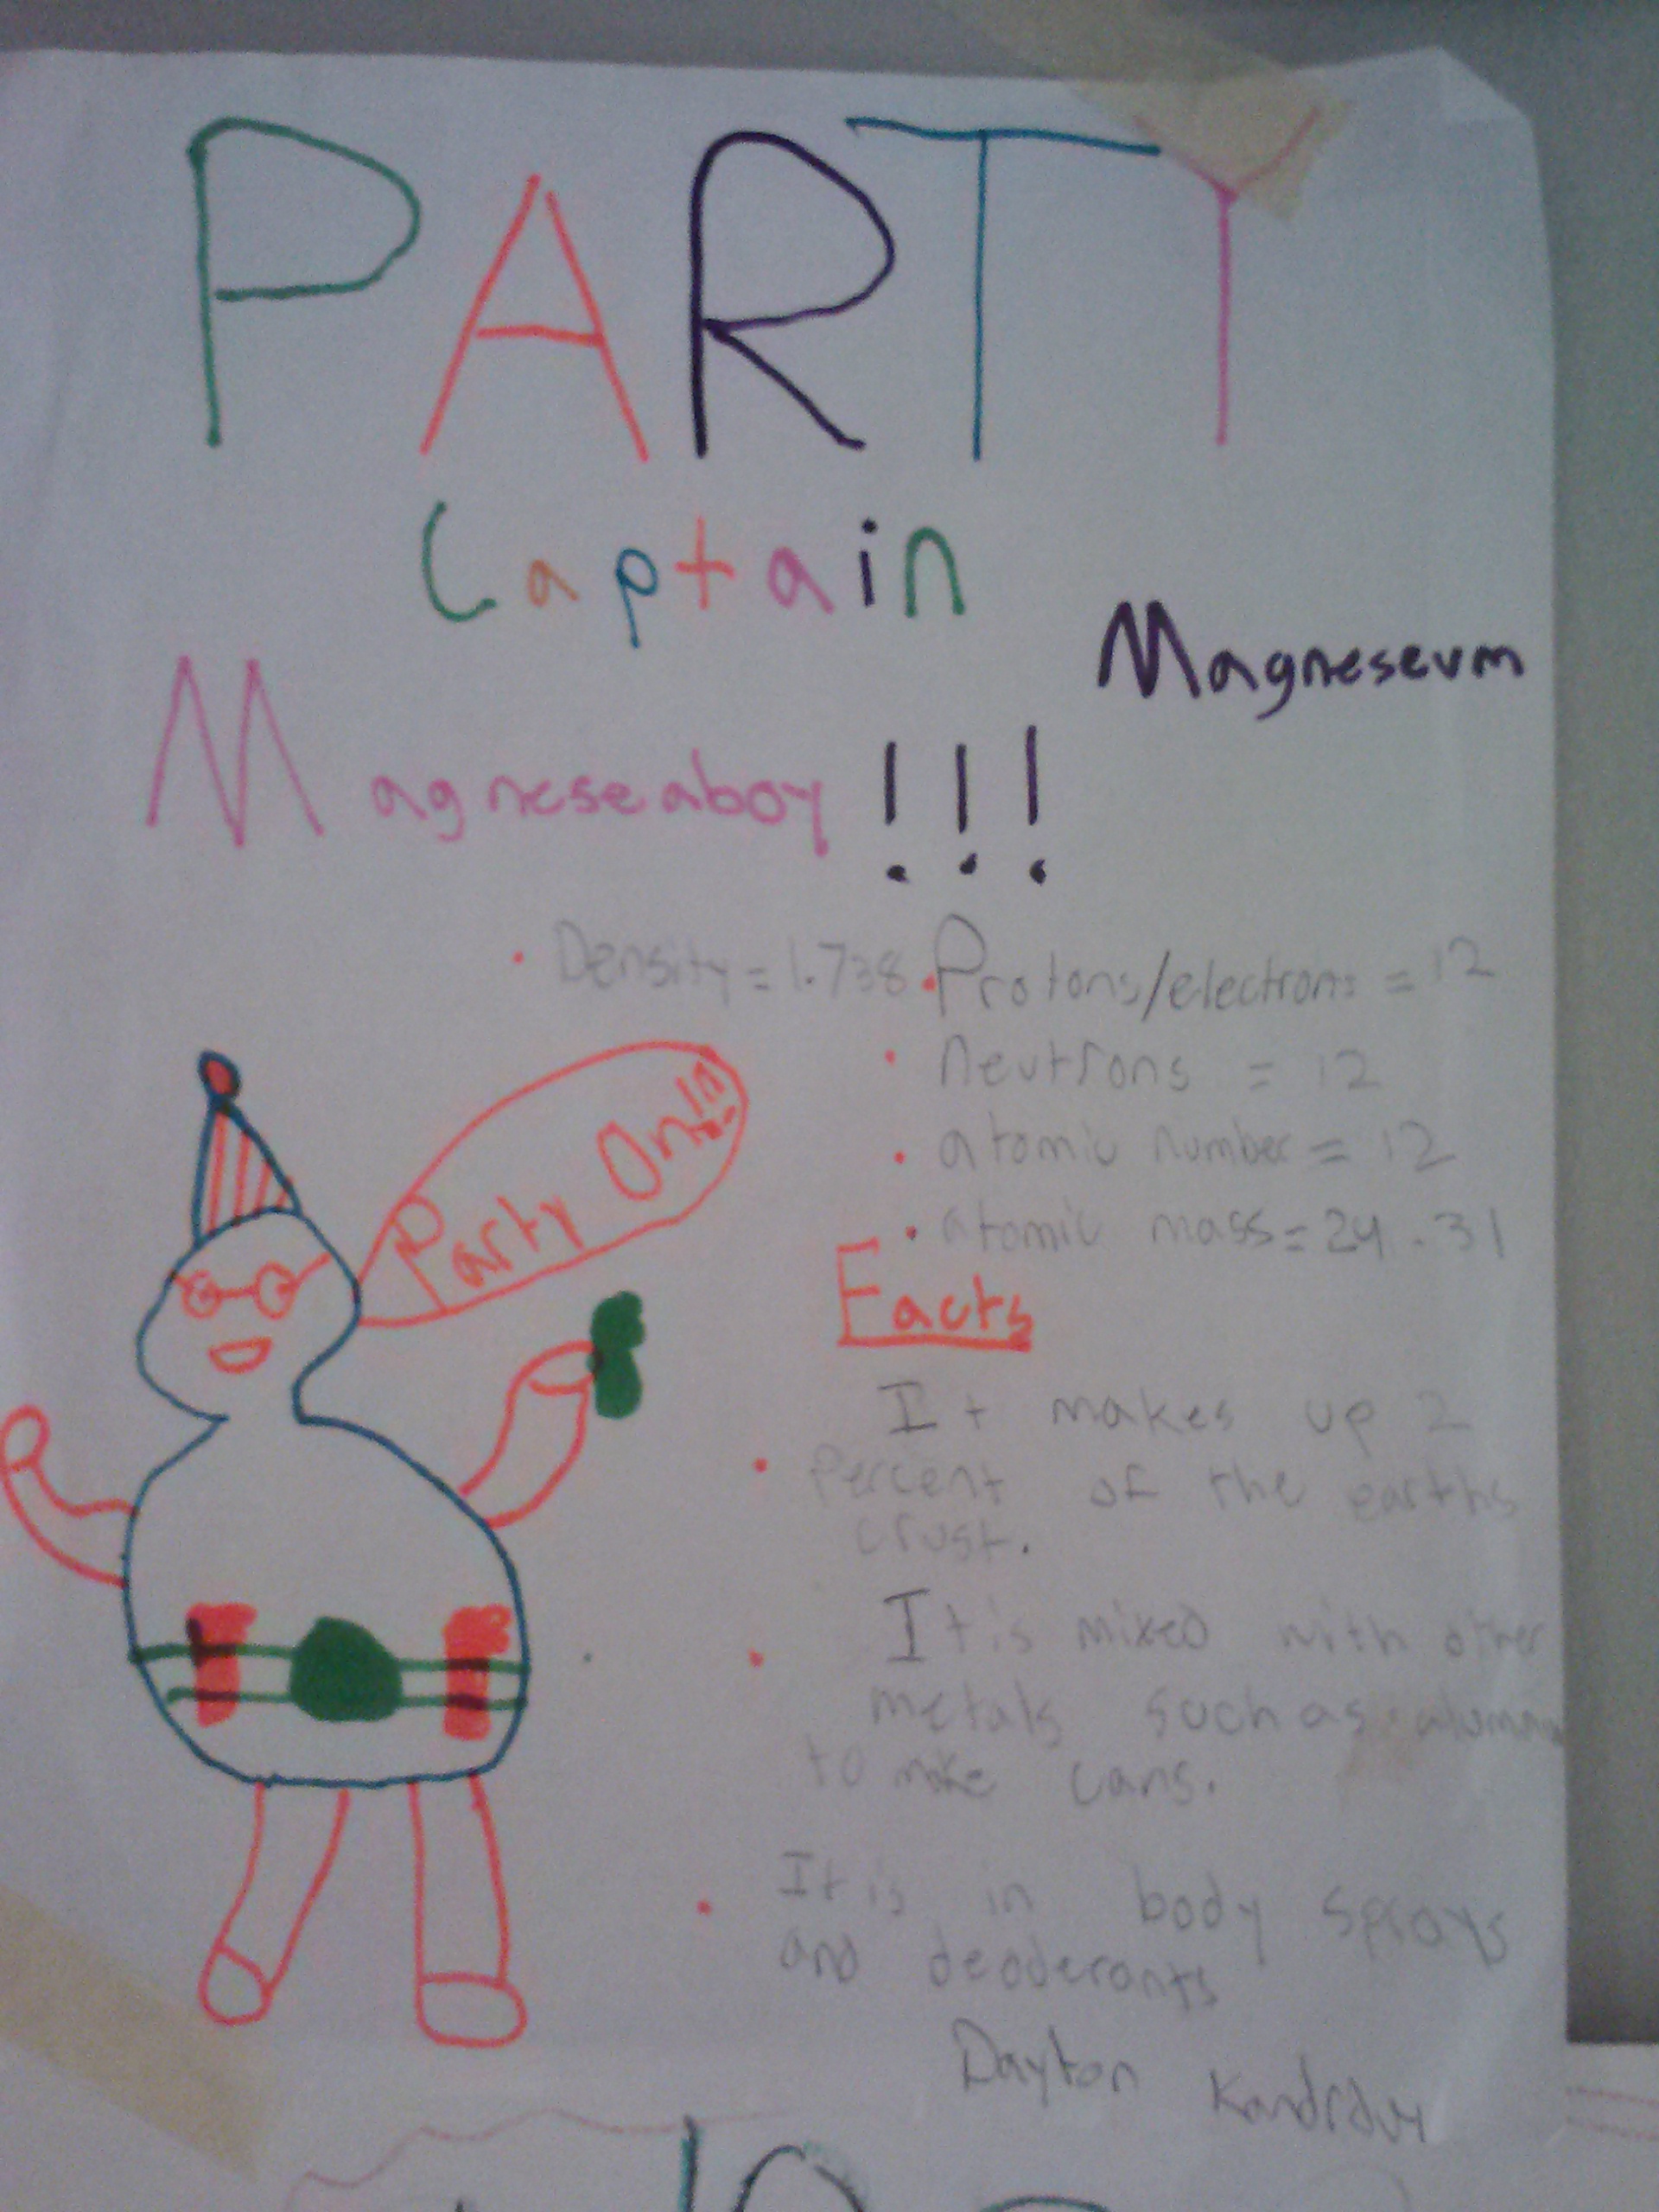 PARTY
Captain
Magneseum
Magneseaboy !!!
• Density = 1.738
• Protons/electrons = 12
• neutrons = 12
• atomic number = 12
• atomic mass = 24.31
Party On!!!
Facts
It makes up 2
• percent of the earths
crust.
• It is mixed with other
metals such as
to make cans.
• It is in body sprays
and deoderants
Dayton